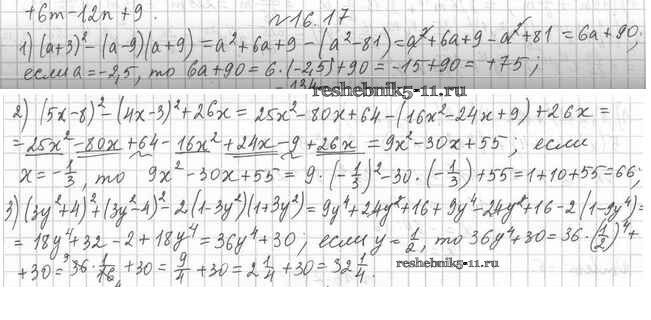 +6m-12n+9.
№16.17
1) (a+3)²-(a-9)(a+9)=a²+6a+9-(a²-81)=a²+6a+9-a²+81=6a+90,
если a=-2,5, то 6a+90=6·(-2,5)+90=-15+90=+75;
reshebnik5-11.ru
2) (5x-8)²-(4x-3)²+26x=25x²-80x+64-(16x²-24x+9)+26x=
=25x²-80x+64-16x²+24x-9+26x=9x²-30x+55; если
x=-1/3, то 9x²-30x+55=9·(-1/3)²-30·(-1/3)+55=1+10+55=66;
3) (3y²+4)²+(3y²-4)²-2(1-3y²)(1+3y²)=9y⁴+24y²+16+9y⁴-24y²+16-2(1-9y⁴)=
=18y⁴+32-2+18y⁴=36y⁴+30; если y=1/2, то 36y⁴+30=36·(1/2)⁴+
+30=36·1/16+30=9/4+30=2 1/4+30=32 1/4.
reshebnik5-11.ru